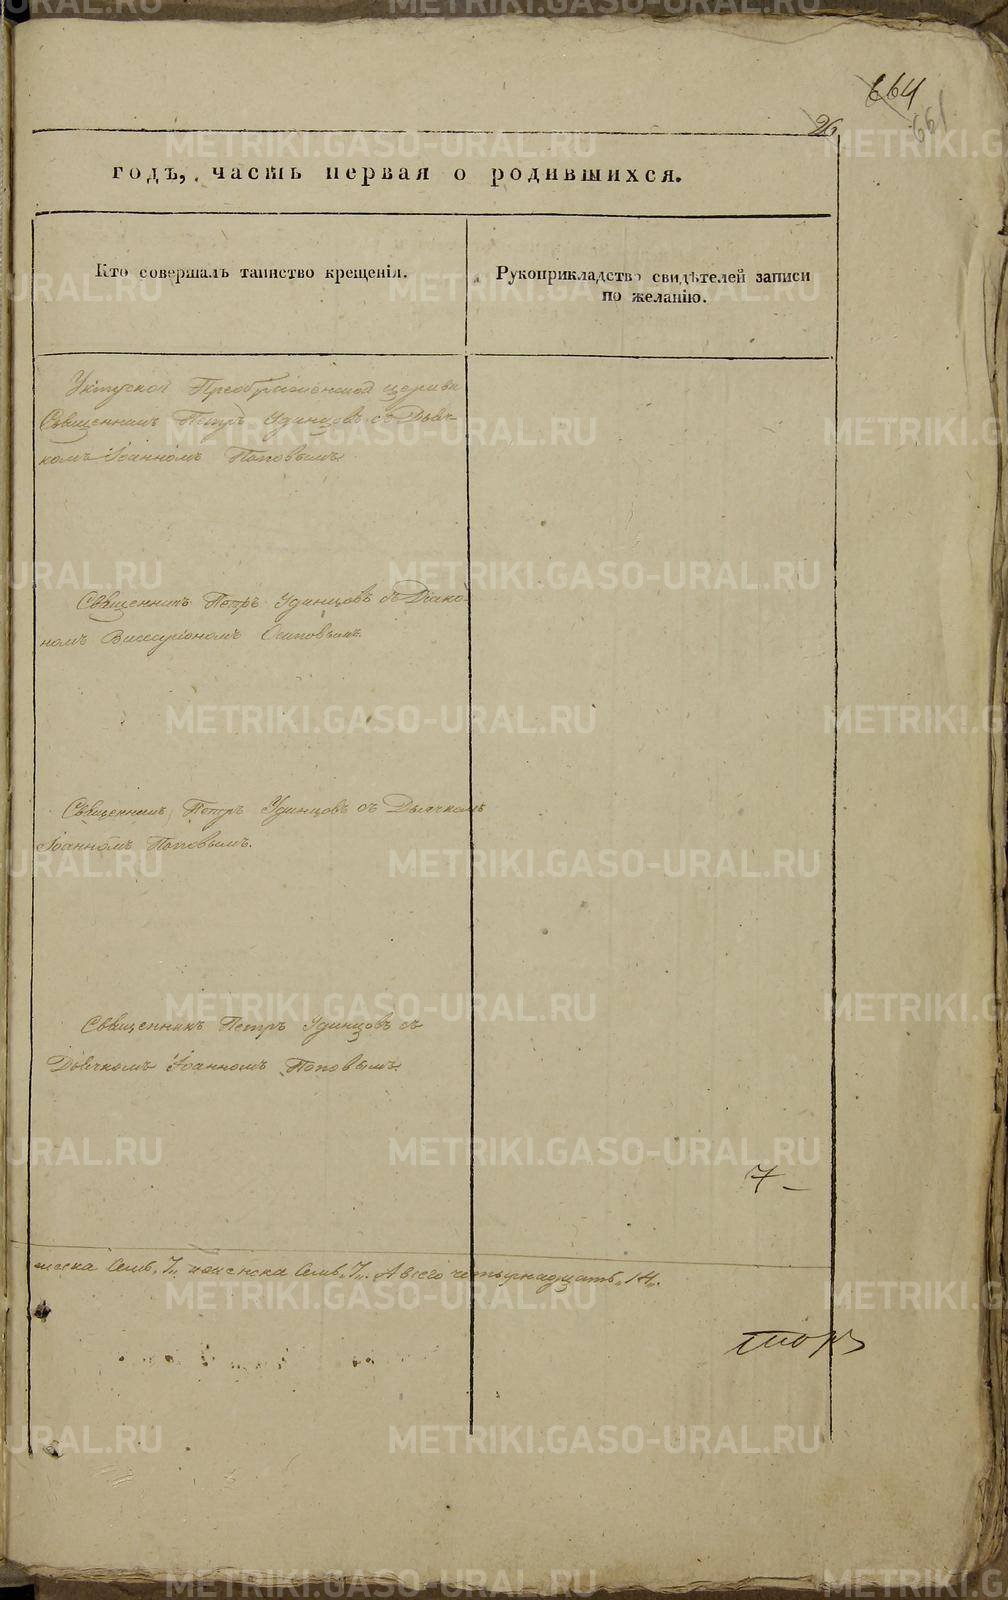 664
661
26
годъ, часть первая о родившихся.
Кто совершалъ таинство крещенія.
Рукоприкладство свидѣтелей записи
по желанію.
Уктуской Преображенской церкви
Священникъ Петръ Удинцовъ съ Дьяч-
комъ Іоанномъ Поповымъ
Священникъ Петръ Удинцовъ съ Діако-
номъ Виссаріономъ Осиповымъ
Священникъ Петръ Удинцовъ съ Дьячкомъ
Іоанномъ Поповымъ.
Священникъ Петръ Удинцовъ съ
Дьячкомъ Іоанномъ Поповымъ
7 –
жеска семь, 7, женска семь, 7. А всего четырнадцать, 14.
METRIKI.GASO-URAL.RU